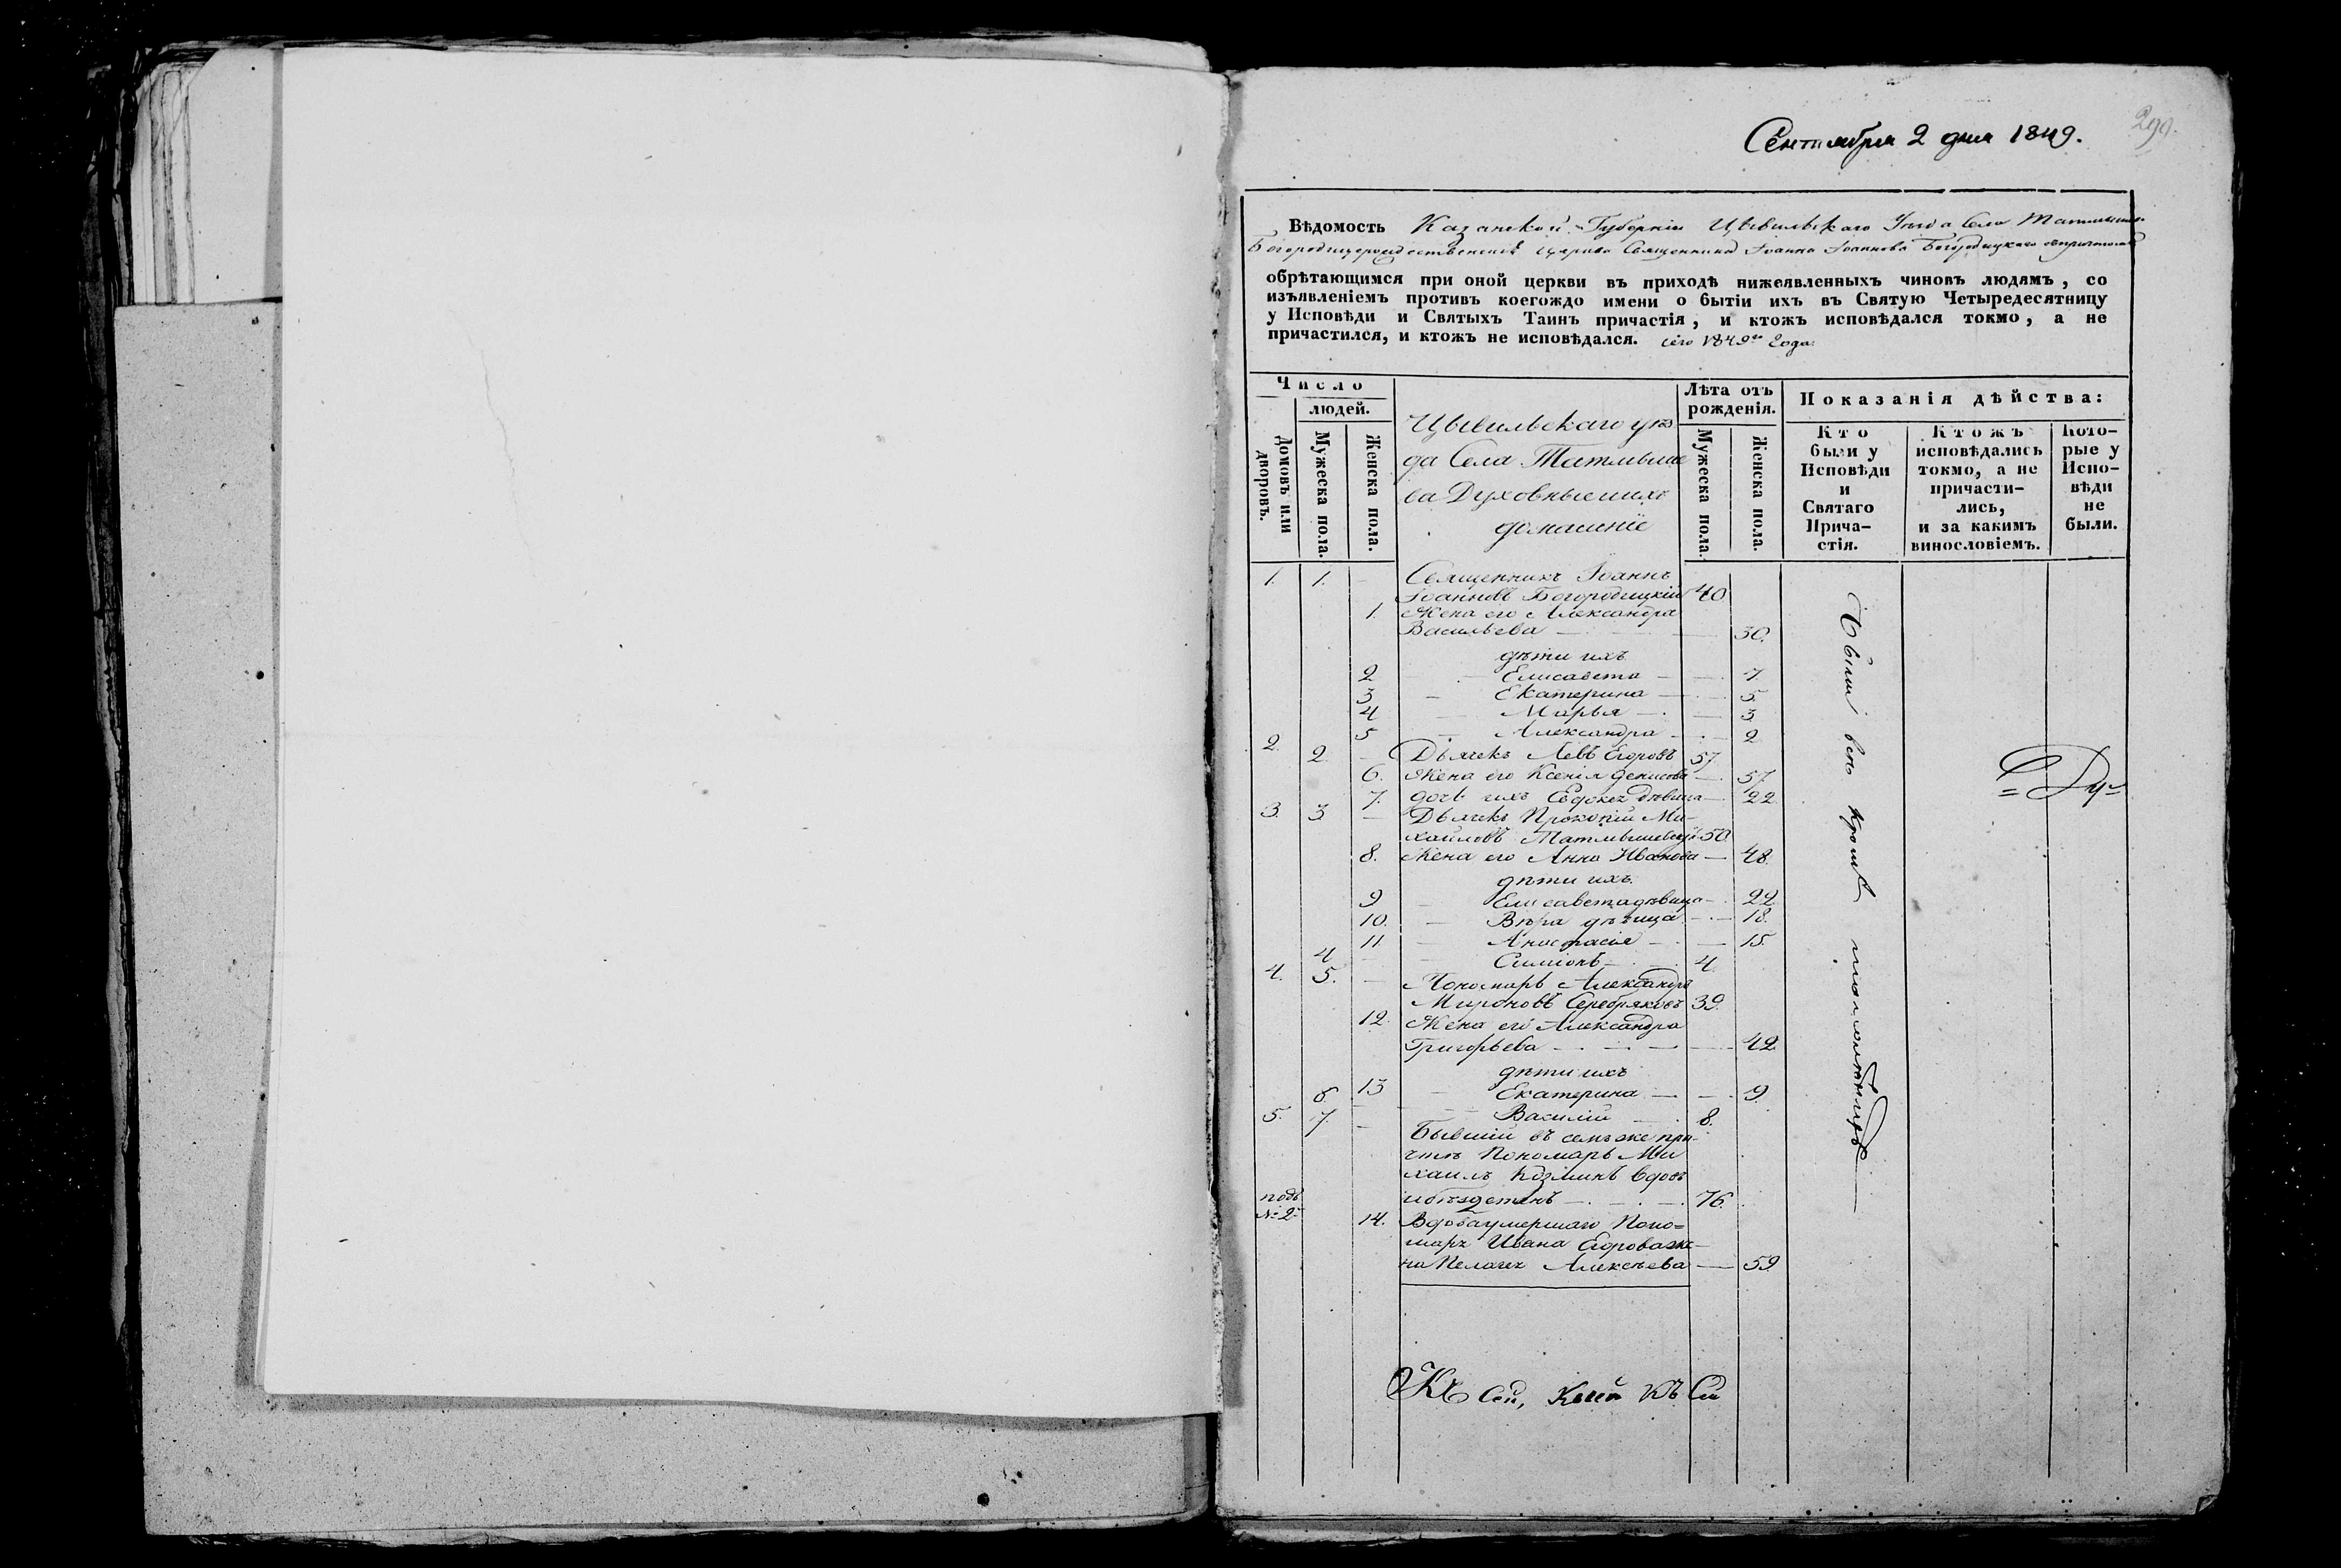 Сентября 2 дня 1849.
299.
Вѣдомость Казанской Губерніи Цывильскаго Уѣзда Села Татмышева
Богородицерождественской Церкви Священника Іоанна Іоаннова Богородицкаго съ причтомъ
обрѣтающимся при оной церкви въ приходѣ нижеявленныхъ чиновъ людямъ, со
изъявленіемъ противъ коегождо имени о бытіи ихъ въ Святую Четыредесятницу
у Исповѣди и Святыхъ Таинъ причастія, и ктожъ исповѣдался токмо, а не
причастился, и ктожъ не исповѣдался. сего 1849го года.
Число
людей.
Домовъ или дворовъ.
Мужеска пола.
Женска пола.
Цывильскаго уѣз
да Села Татмыше
ва Духовные и ихъ
домашніе
Лѣта отъ
рожденія.
Мужеска пола.
Женска пола.
Показанія дѣйства:
Кто
были у
Исповѣди
и
Святаго
Прича-
стія.
Ктожъ
исповѣдались
токмо, а не
причасти-
лись,
и за какимъ
винословіемъ.
Кото-
рые у
Испо-
вѣди
не
были.
1. 1. – Священникъ Іоаннъ
Іоанновъ Богородицкій 40
1. Жена его Александра
Васильева 30.
дѣти ихъ
2 Елисавета 7.
3 Екатерина 5
4 Марья 3
5 Александра 2
2. 2. – Дьячекъ Левъ Егоровъ 57
6. Жена его Ксенія Денисова 57.
7. дочь ихъ Евдокея дѣвица 22
3. 3 – Дьячекъ Прокопій Ми-
хайловъ Татмышевскій 50
8. Жена его Анна Иванова 48
дѣти ихъ.
9 Елисавета дѣвица 22
10. Вѣра дѣвица 18.
11 Анастасія 15.
4 – Симіонъ 4
4. 5. – Пономарь Александръ
Мироновъ Серебряковъ 39.
12. Жена его Александра
Григорьева 42
дѣти ихъ
13 Екатерина 9.
6 Василій 8.
5. 7. – Бывшій въ семъ же при-
чтѣ Пономарь Ми
хаилъ Козминъ вдовъ
и бездетенъ 76.
подъ
№ 2й
14. Вдова умершаго Поно=
маря Ивана Егорова же-
на Пелагея Алексѣева 59
Были всѣ кроме малолѣтнихъ
= Ду=
Къ сей, Книгѣ къ Си